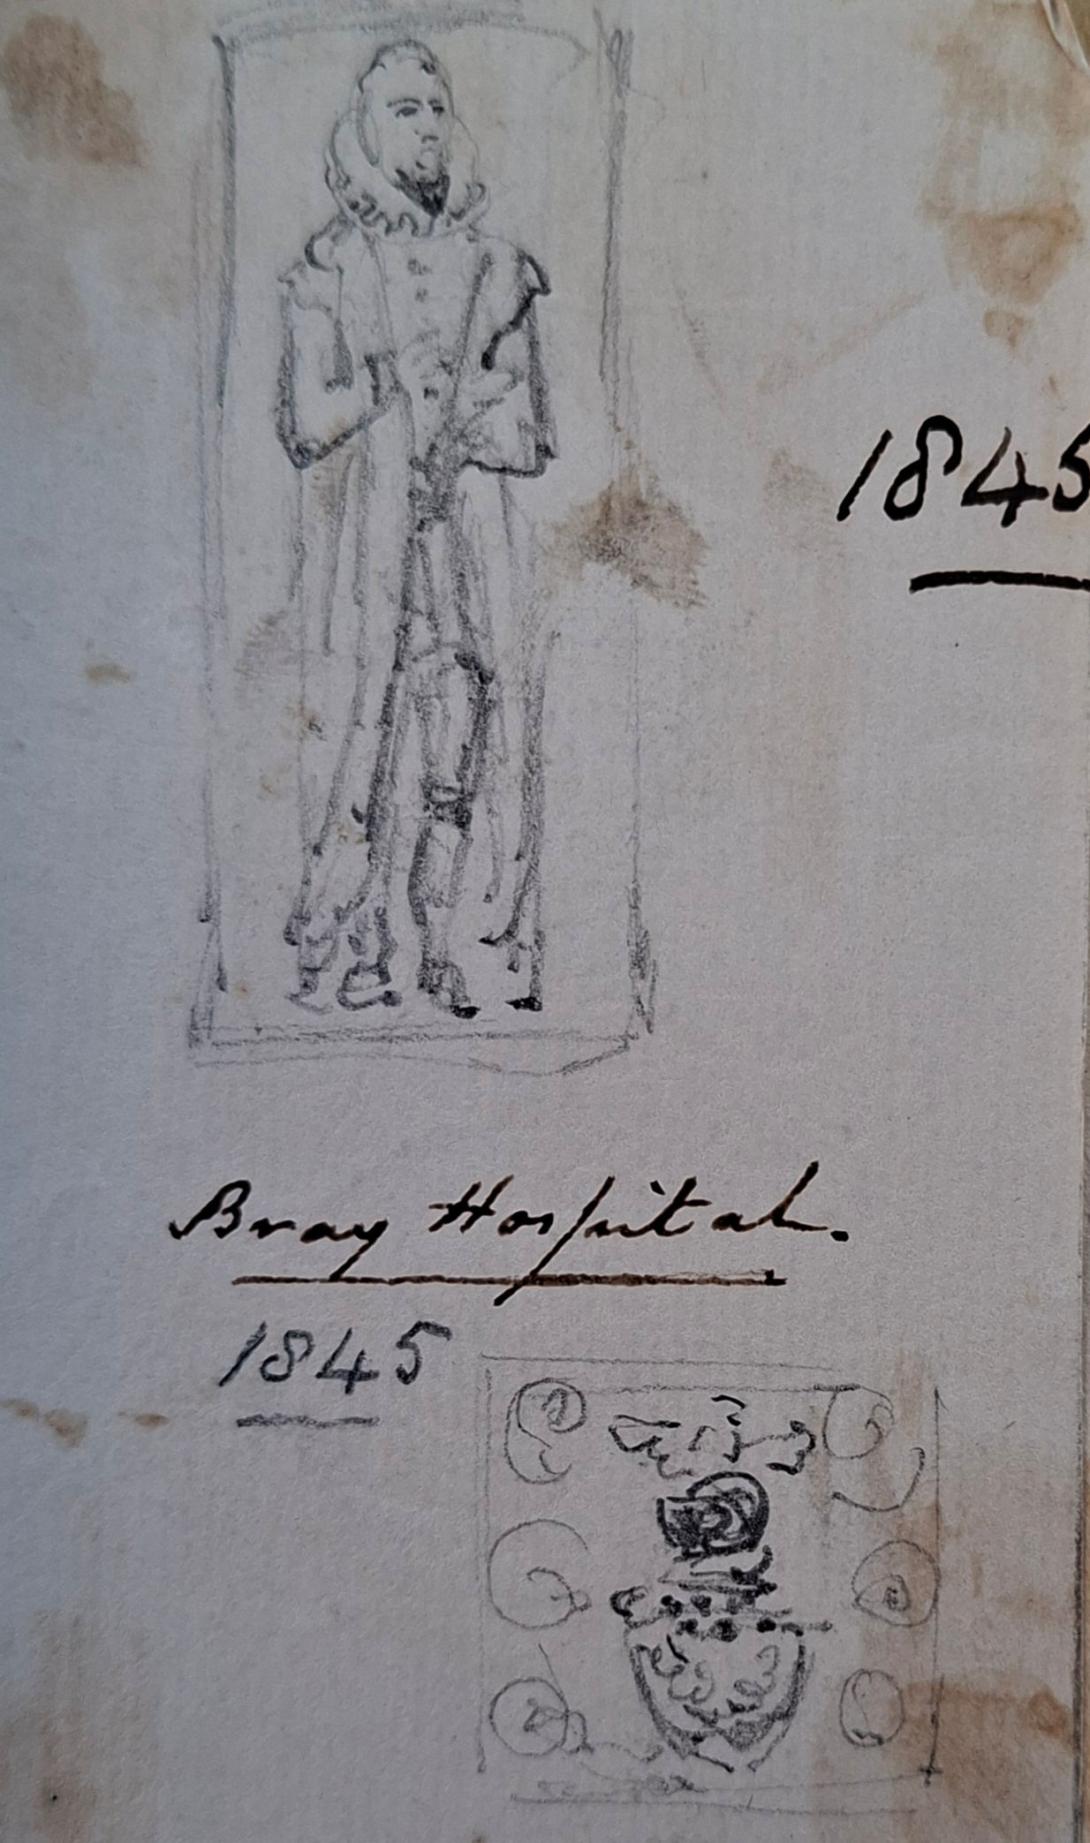 1845
Bray Hospital.
1845